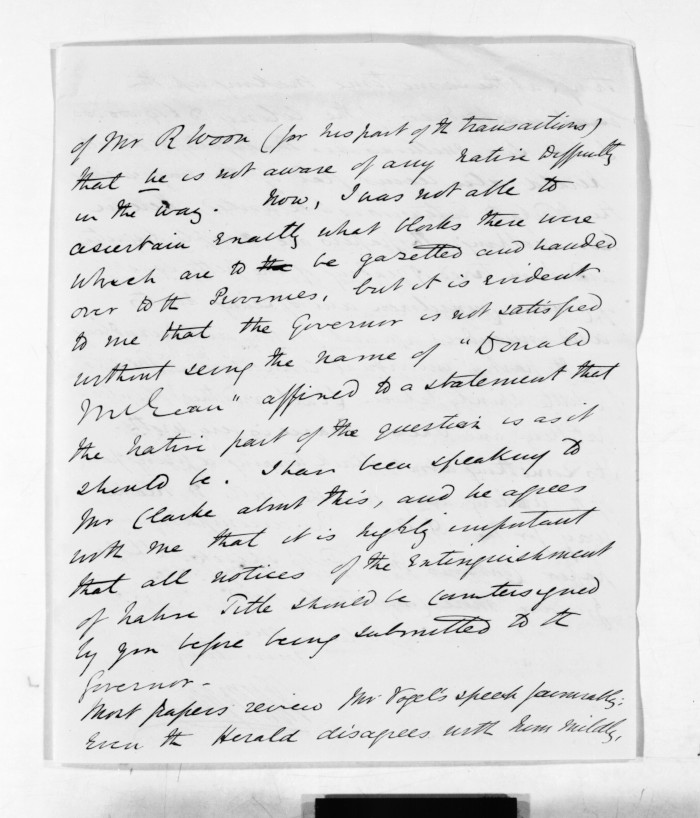 of Mr R Woon (for his part of the transactions)
that he is not aware of any native Difficulty
in the way. Now, I was not able to
ascertain exactly what blocks there were
which are to the be gazetted and handed
over to th Provinces, but it is evident
to me that the Governor is not satisfied
without seeing the name of "Donald
McLean" affixed to a statement that
the native part of the question is as it
should be. I have been speaking to
Mr Clarke about this, and he agrees
with me that it is highly important
that all notices of the extinguishment
of Native Title should be countersigned
by you before being submitted to th
Governor -
Most papers review Mr Vogel's speech favourably:
Even th Herald disagrees with him mildly,